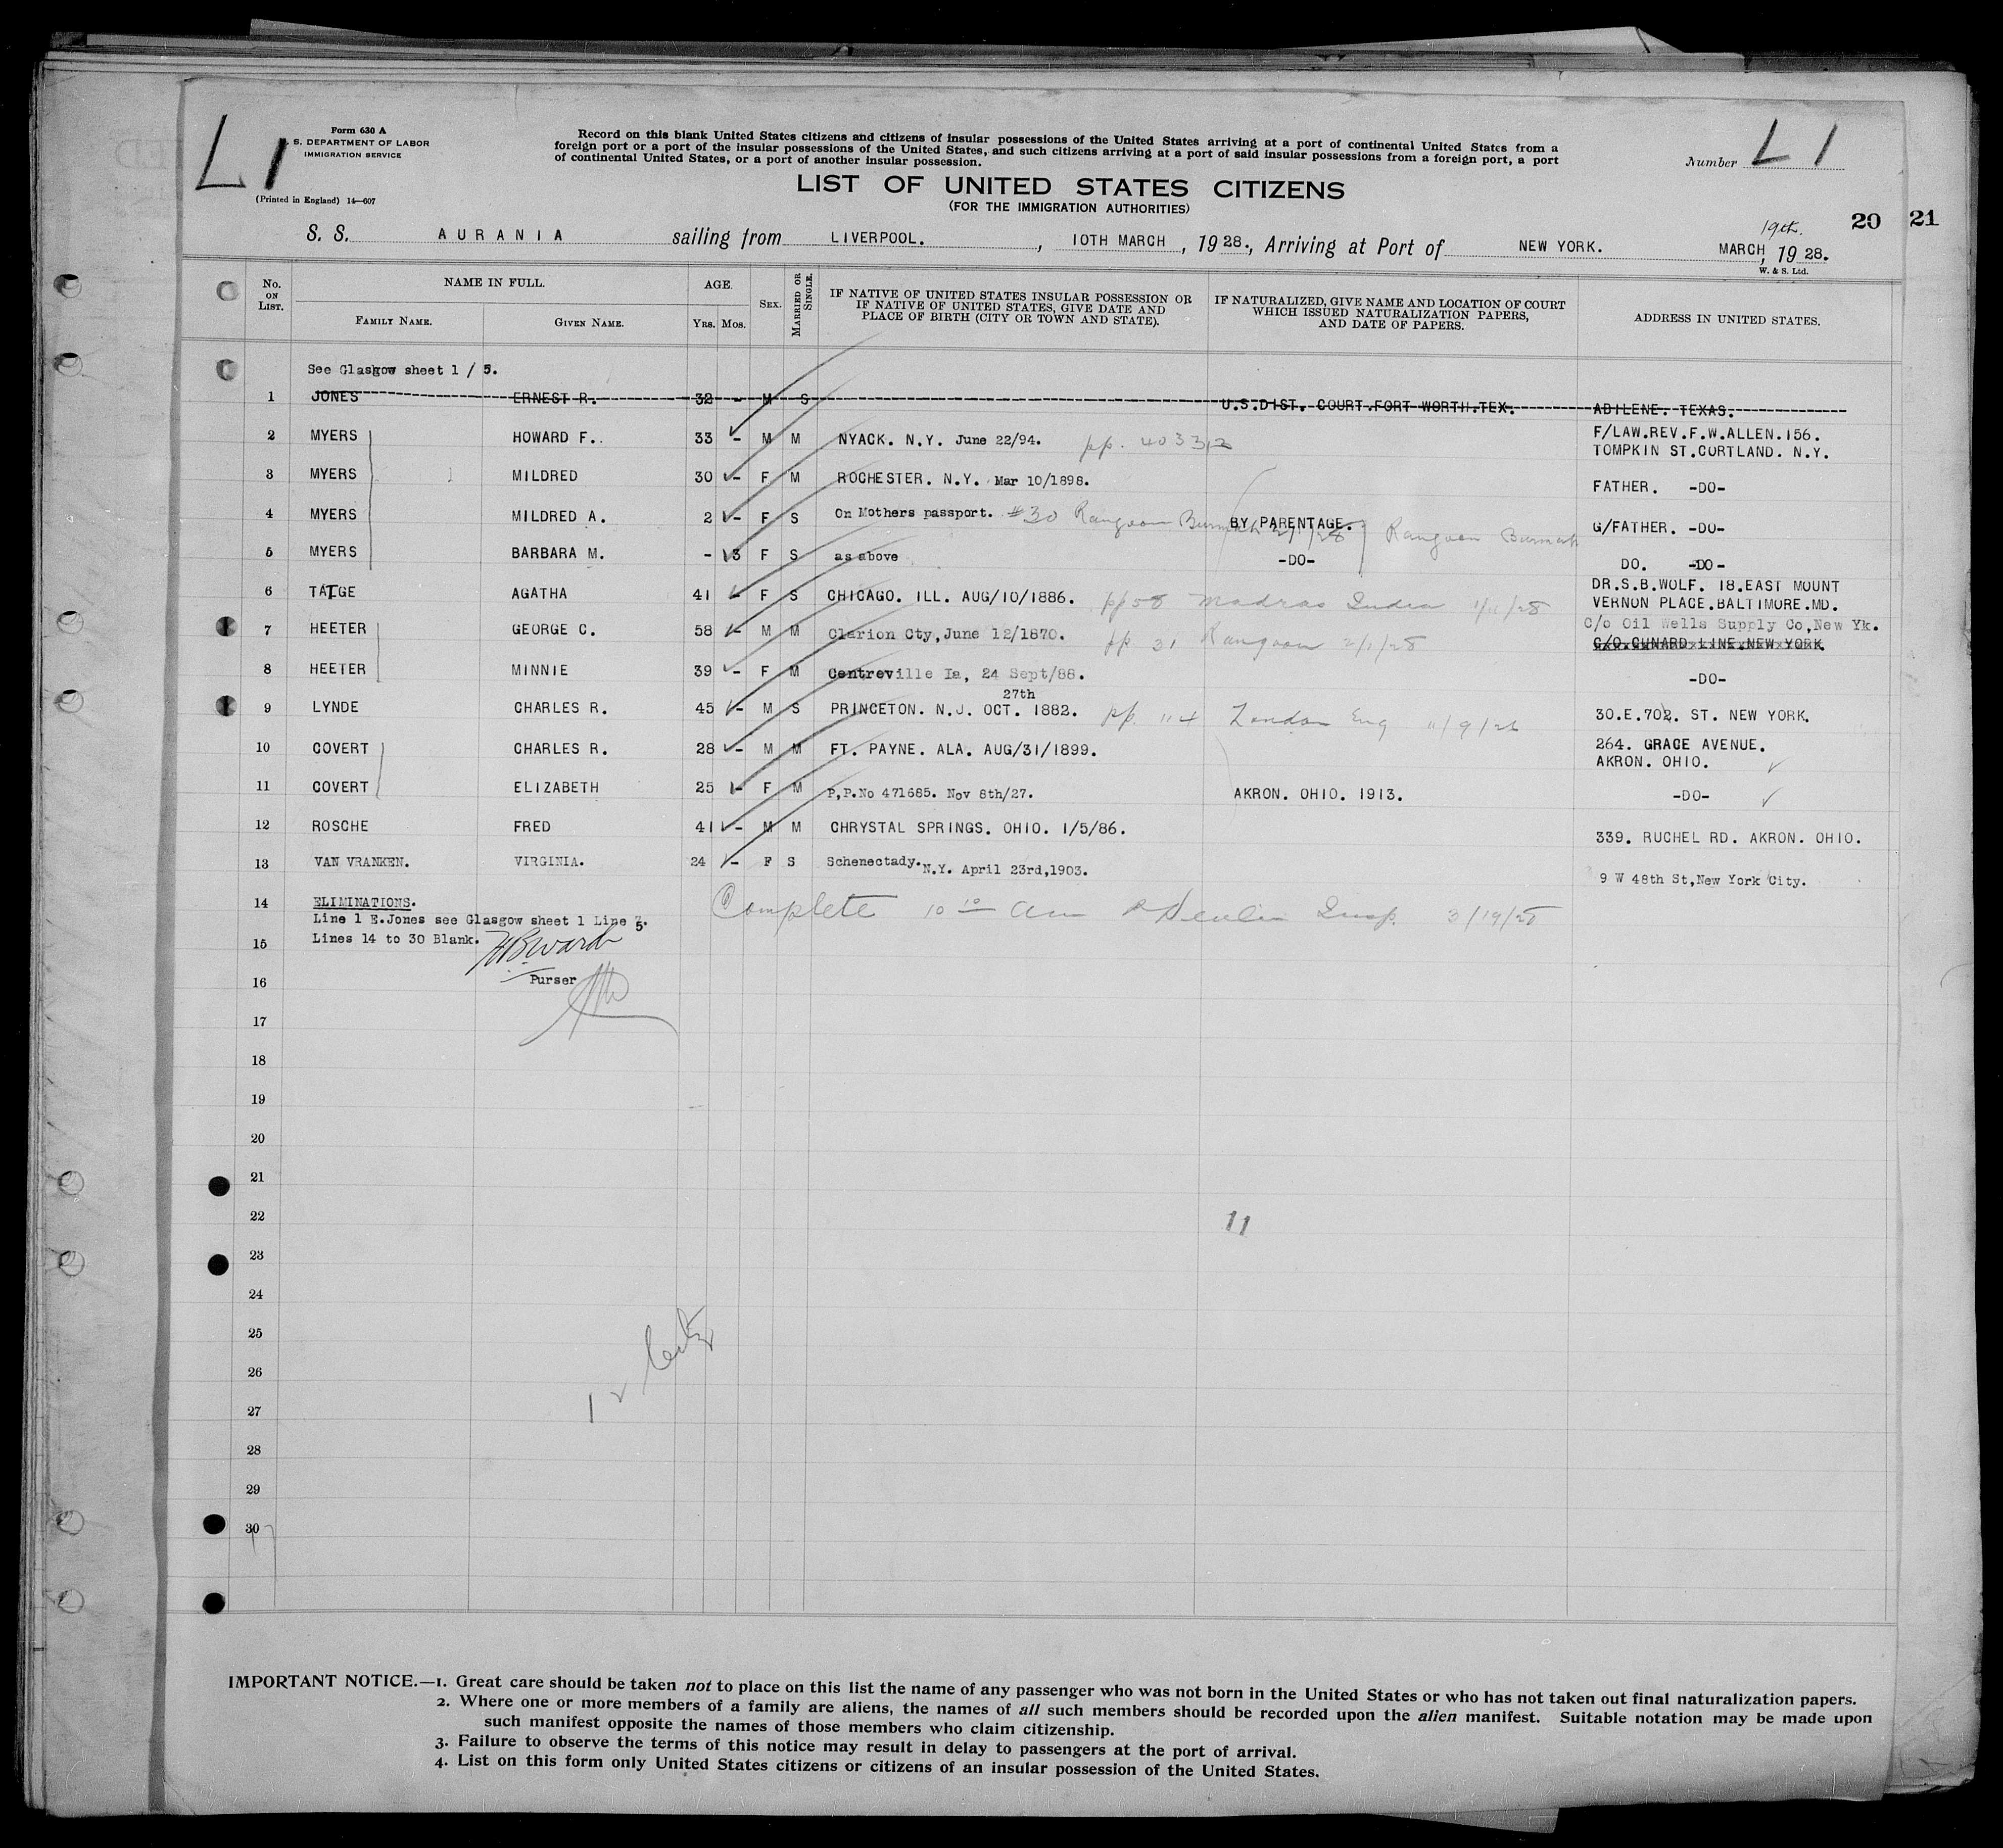 L1
Form 630 A
S. DEPARTMENT OF LABOR
IMMIGRATION SERVICE
(Printed in England) 14—607
Record on this blank United States citizens and citizens of insular possessions of the United States arriving at a port of continental United States from a
foreign port or a port of the insular possessions of the United States, and such citizens arriving at a port of said insular possessions from a foreign port, a port
of continental United States, or a port of another insular possession.
Number L 1
LIST OF UNITED STATES CITIZENS
(FOR THE IMMIGRATION AUTHORITIES)
20 21
S. S. AURANIA sailing from LIVERPOOL. , 10TH MARCH , 19 28., Arriving at Port of NEW YORK. MARCH 19th. , 19 28.
W. & S. Ltd.
No. ON LIST. NAME IN FULL. AGE. SEX. MARRIED OR SINGLE. IF NATIVE OF UNITED STATES INSULAR POSSESSION OR IF NATIVE OF UNITED STATES, GIVE DATE AND PLACE OF BIRTH (CITY OR TOWN AND STATE). IF NATURALIZED, GIVE NAME AND LOCATION OF COURT WHICH ISSUED NATURALIZATION PAPERS, AND DATE OF PAPERS. ADDRESS IN UNITED STATES.
FAMILY NAME. GIVEN NAME. Yrs. Mos.
See Glasgow sheet 1 / 5.
1 JONES ERNEST R. 32 - M S U.S.DIST. COURT.FORT WORTH.TEX. ABILENE. TEXAS.
2 MYERS HOWARD F.. 33 - M M NYACK. N.Y. June 22/94. pp. 403312 F/LAW.REV.F.W.ALLEN.156.
TOMPKIN ST.CORTLAND. N.Y.
3 MYERS MILDRED 30 - F M ROCHESTER. N.Y. Mar 10/1898. FATHER. -DO-
4 MYERS MILDRED A. 2 - F S On Mothers passport. #30 Rangoon Burmah 2/1/28 BY PARENTAGE. Rangoon Burmah G/FATHER. -DO-
5 MYERS BARBARA M. - 3 F S as above -DO- DO. -DO-
6 TATGE AGATHA 41 - F S CHICAGO. ILL. AUG/10/1886. pp 58 Madras India 1/11/28 DR.S.B.WOLF. 18.EAST MOUNT
VERNON PLACE.BALTIMORE.MD.
7 HEETER GEORGE C. 58 - M M Clarion Cty,June 12/1870. pp 31 Rangoon 2/1/28 C/o Oil Wells Supply Co,New Yk.
C/O.CUNARD LINE.NEW YORK
8 HEETER MINNIE 39 - F M Centreville Ia, 24 Sept/88. -DO-
27th
9 LYNDE CHARLES R. 45 - M S PRINCETON. N.J. OCT. 1882. pp. 114 London Eng 11/9/26 30.E.702. ST. NEW YORK.
10 COVERT CHARLES R. 28 - M M FT. PAYNE. ALA. AUG/31/1899. 264. GRACE AVENUE.
AKRON. OHIO.
11 COVERT ELIZABETH 25 - F M P,P.No 471685. Nov 8th/27. AKRON. OHIO. 1913. -DO-
12 ROSCHE FRED 41 - M M CHRYSTAL SPRINGS. OHIO. 1/5/86. 339. RUCHEL RD. AKRON. OHIO.
13 VAN VRANKEN. VIRGINIA. 24 - F S Schenectady.N.Y. April 23rd,1903. 9 W 48th St,New York City.
14 ELIMINATIONS. Complete 10 10 am Insp. 3/19/28
Line 1 E.Jones see Glasgow sheet 1 Line 5.
15 Lines 14 to 30 Blank.
Purser
16
17
18
19
20
21
22 11
23
24
25
26
27
28
29
30
IMPORTANT NOTICE.—1. Great care should be taken not to place on this list the name of any passenger who was not born in the United States or who has not taken out final naturalization papers.
2. Where one or more members of a family are aliens, the names of all such members should be recorded upon the alien manifest. Suitable notation may be made upon
such manifest opposite the names of those members who claim citizenship.
3. Failure to observe the terms of this notice may result in delay to passengers at the port of arrival.
4. List on this form only United States citizens or citizens of an insular possession of the United States.